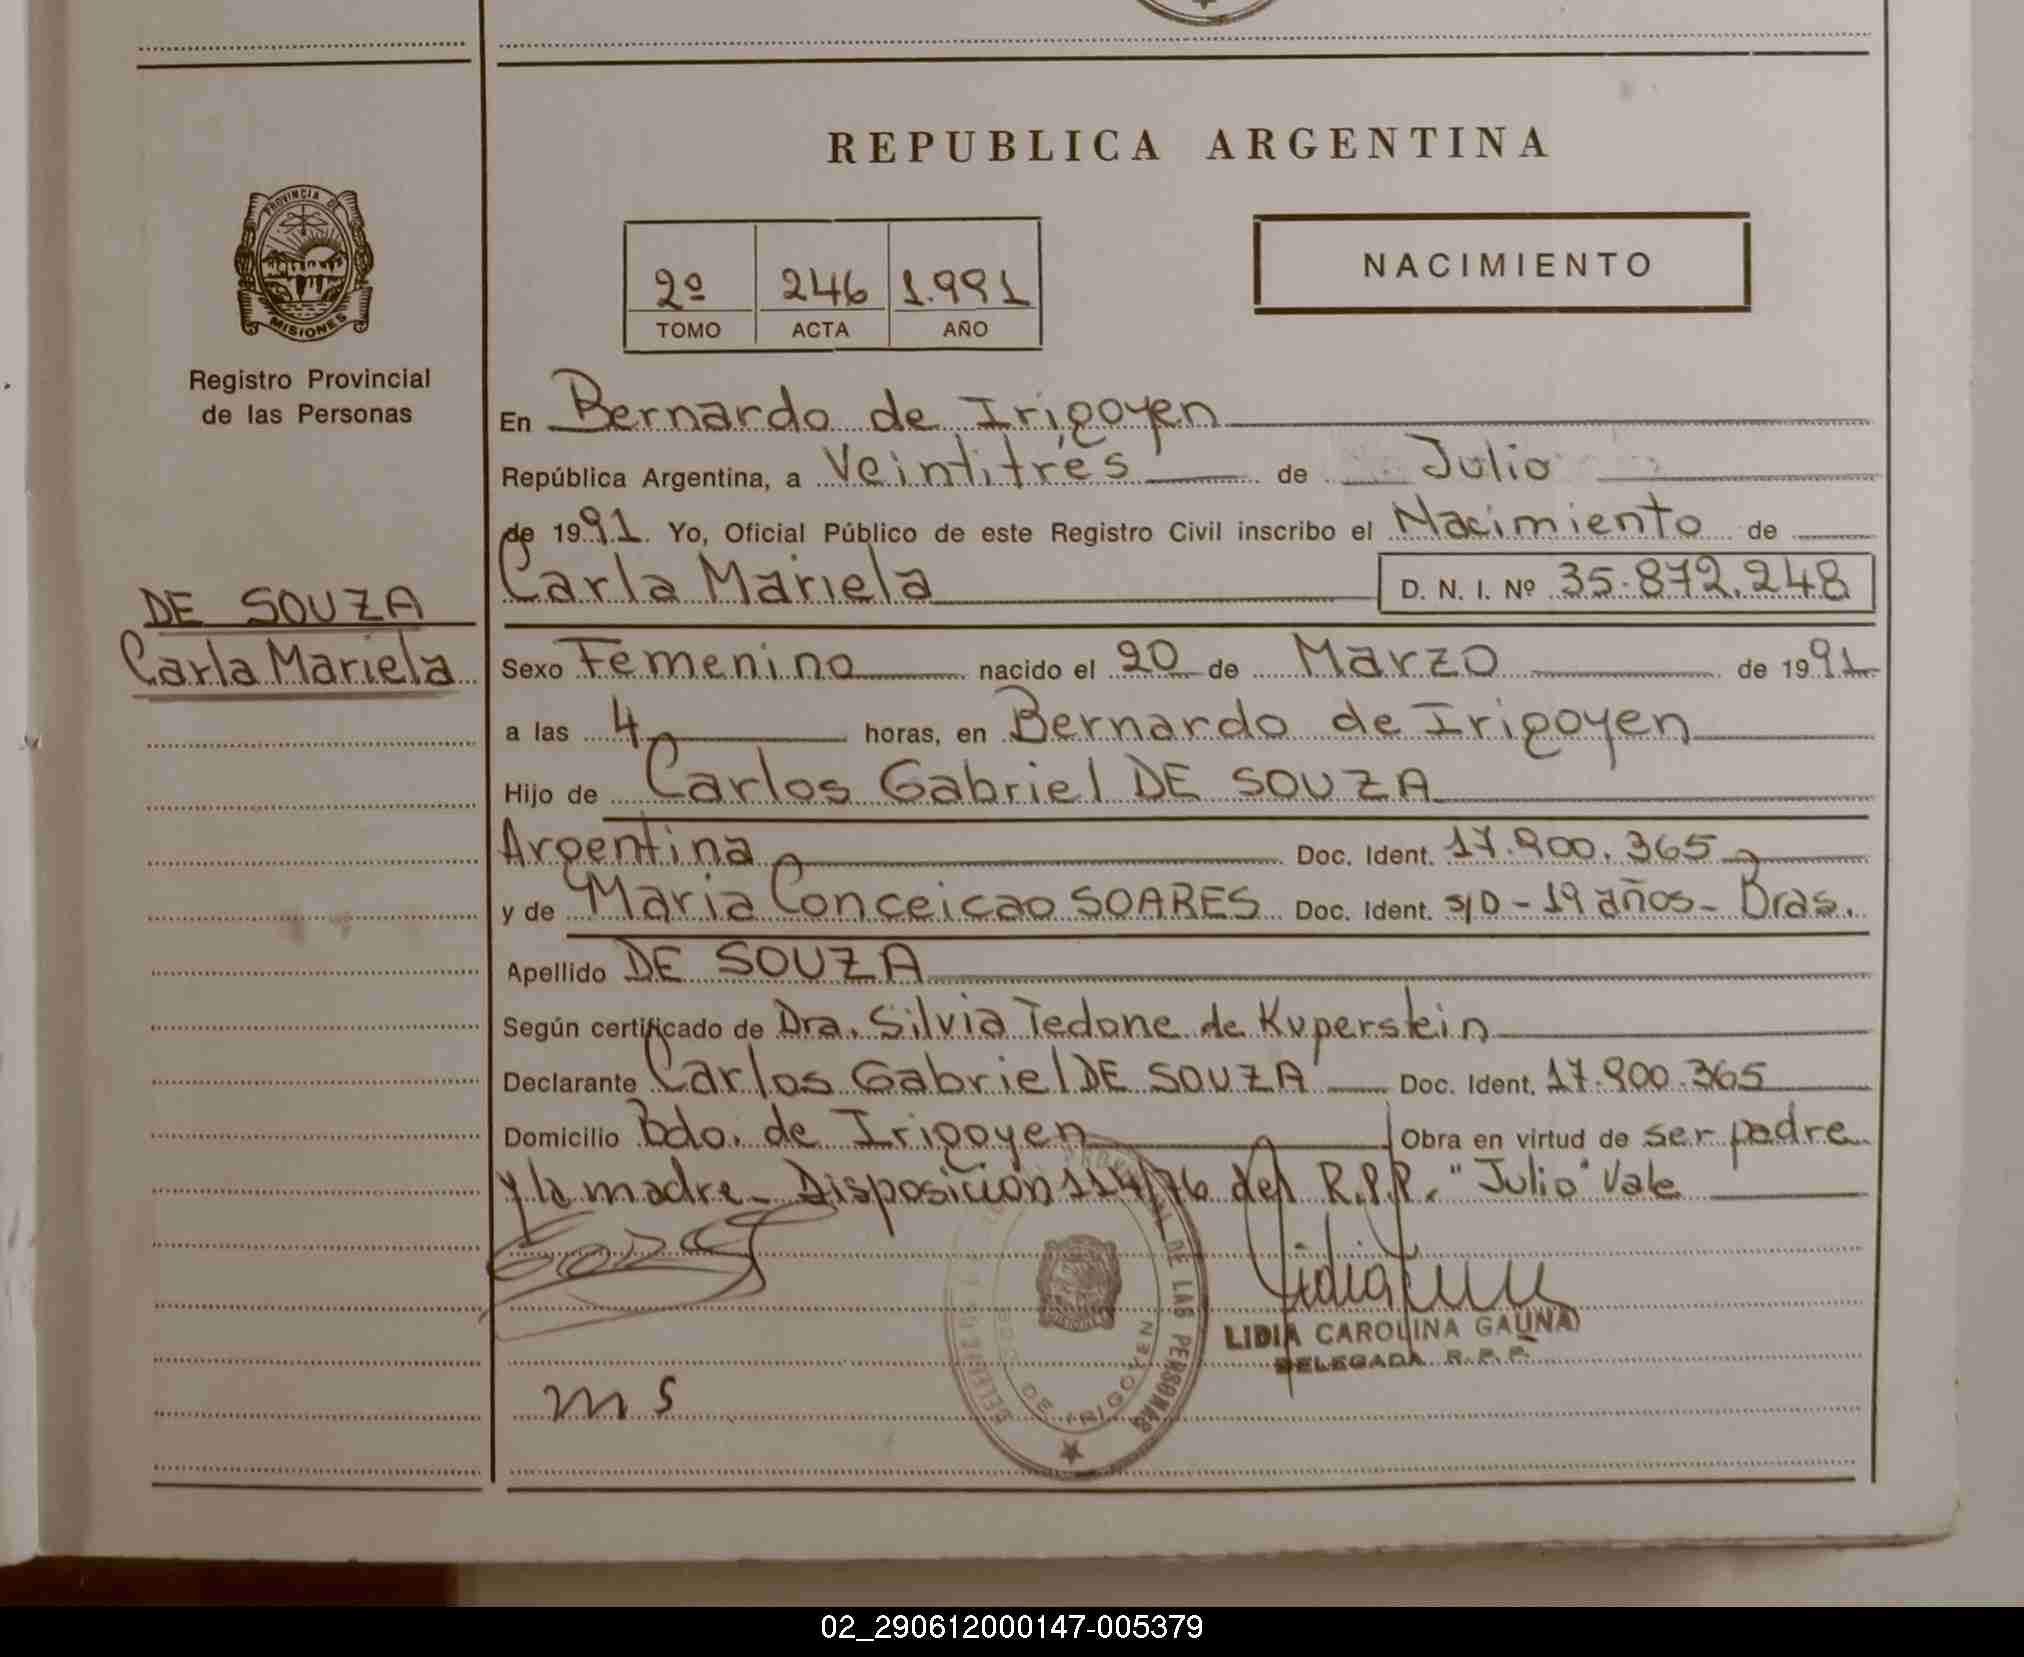 REPUBLICA ARGENTINA
PROVINCIA DE
MISIONES
Registro Provincial
de las Personas
2º 246 1.991
TOMO ACTA AÑO
NACIMIENTO
En Bernardo de Irigoyen
República Argentina, a Veintitrés de Julio
de 1991. Yo, Oficial Público de este Registro Civil inscribo el Nacimiento de
DE SOUZA
Carla Mariela
Carla Mariela D. N. I. Nº 35.872.248
Sexo Femenino nacido el 20 de Marzo de 1991
a las 4 horas, en Bernardo de Irigoyen
Hijo de Carlos Gabriel DE SOUZA
Argentina Doc. Ident. 17.900.365
y de Maria Conceicao SOARES Doc. Ident. s/D - 19 años - Bras.
Apellido DE SOUZA
Según certificado de Dra. Silvia Tedone de Kuperstein
Declarante Carlos Gabriel DE SOUZA Doc. Ident. 17.900.365
Domicilio Bdo. de Irigoyen Obra en virtud de ser padre
y la madre - Disposición 114/76 del R.P.P. "Julio" Vale
DE LAS PERSONAS
DE IRIGOYEN
LIDIA CAROLINA GAUNA
DELEGADA R. P. P.
m s
02_290612000147-005379